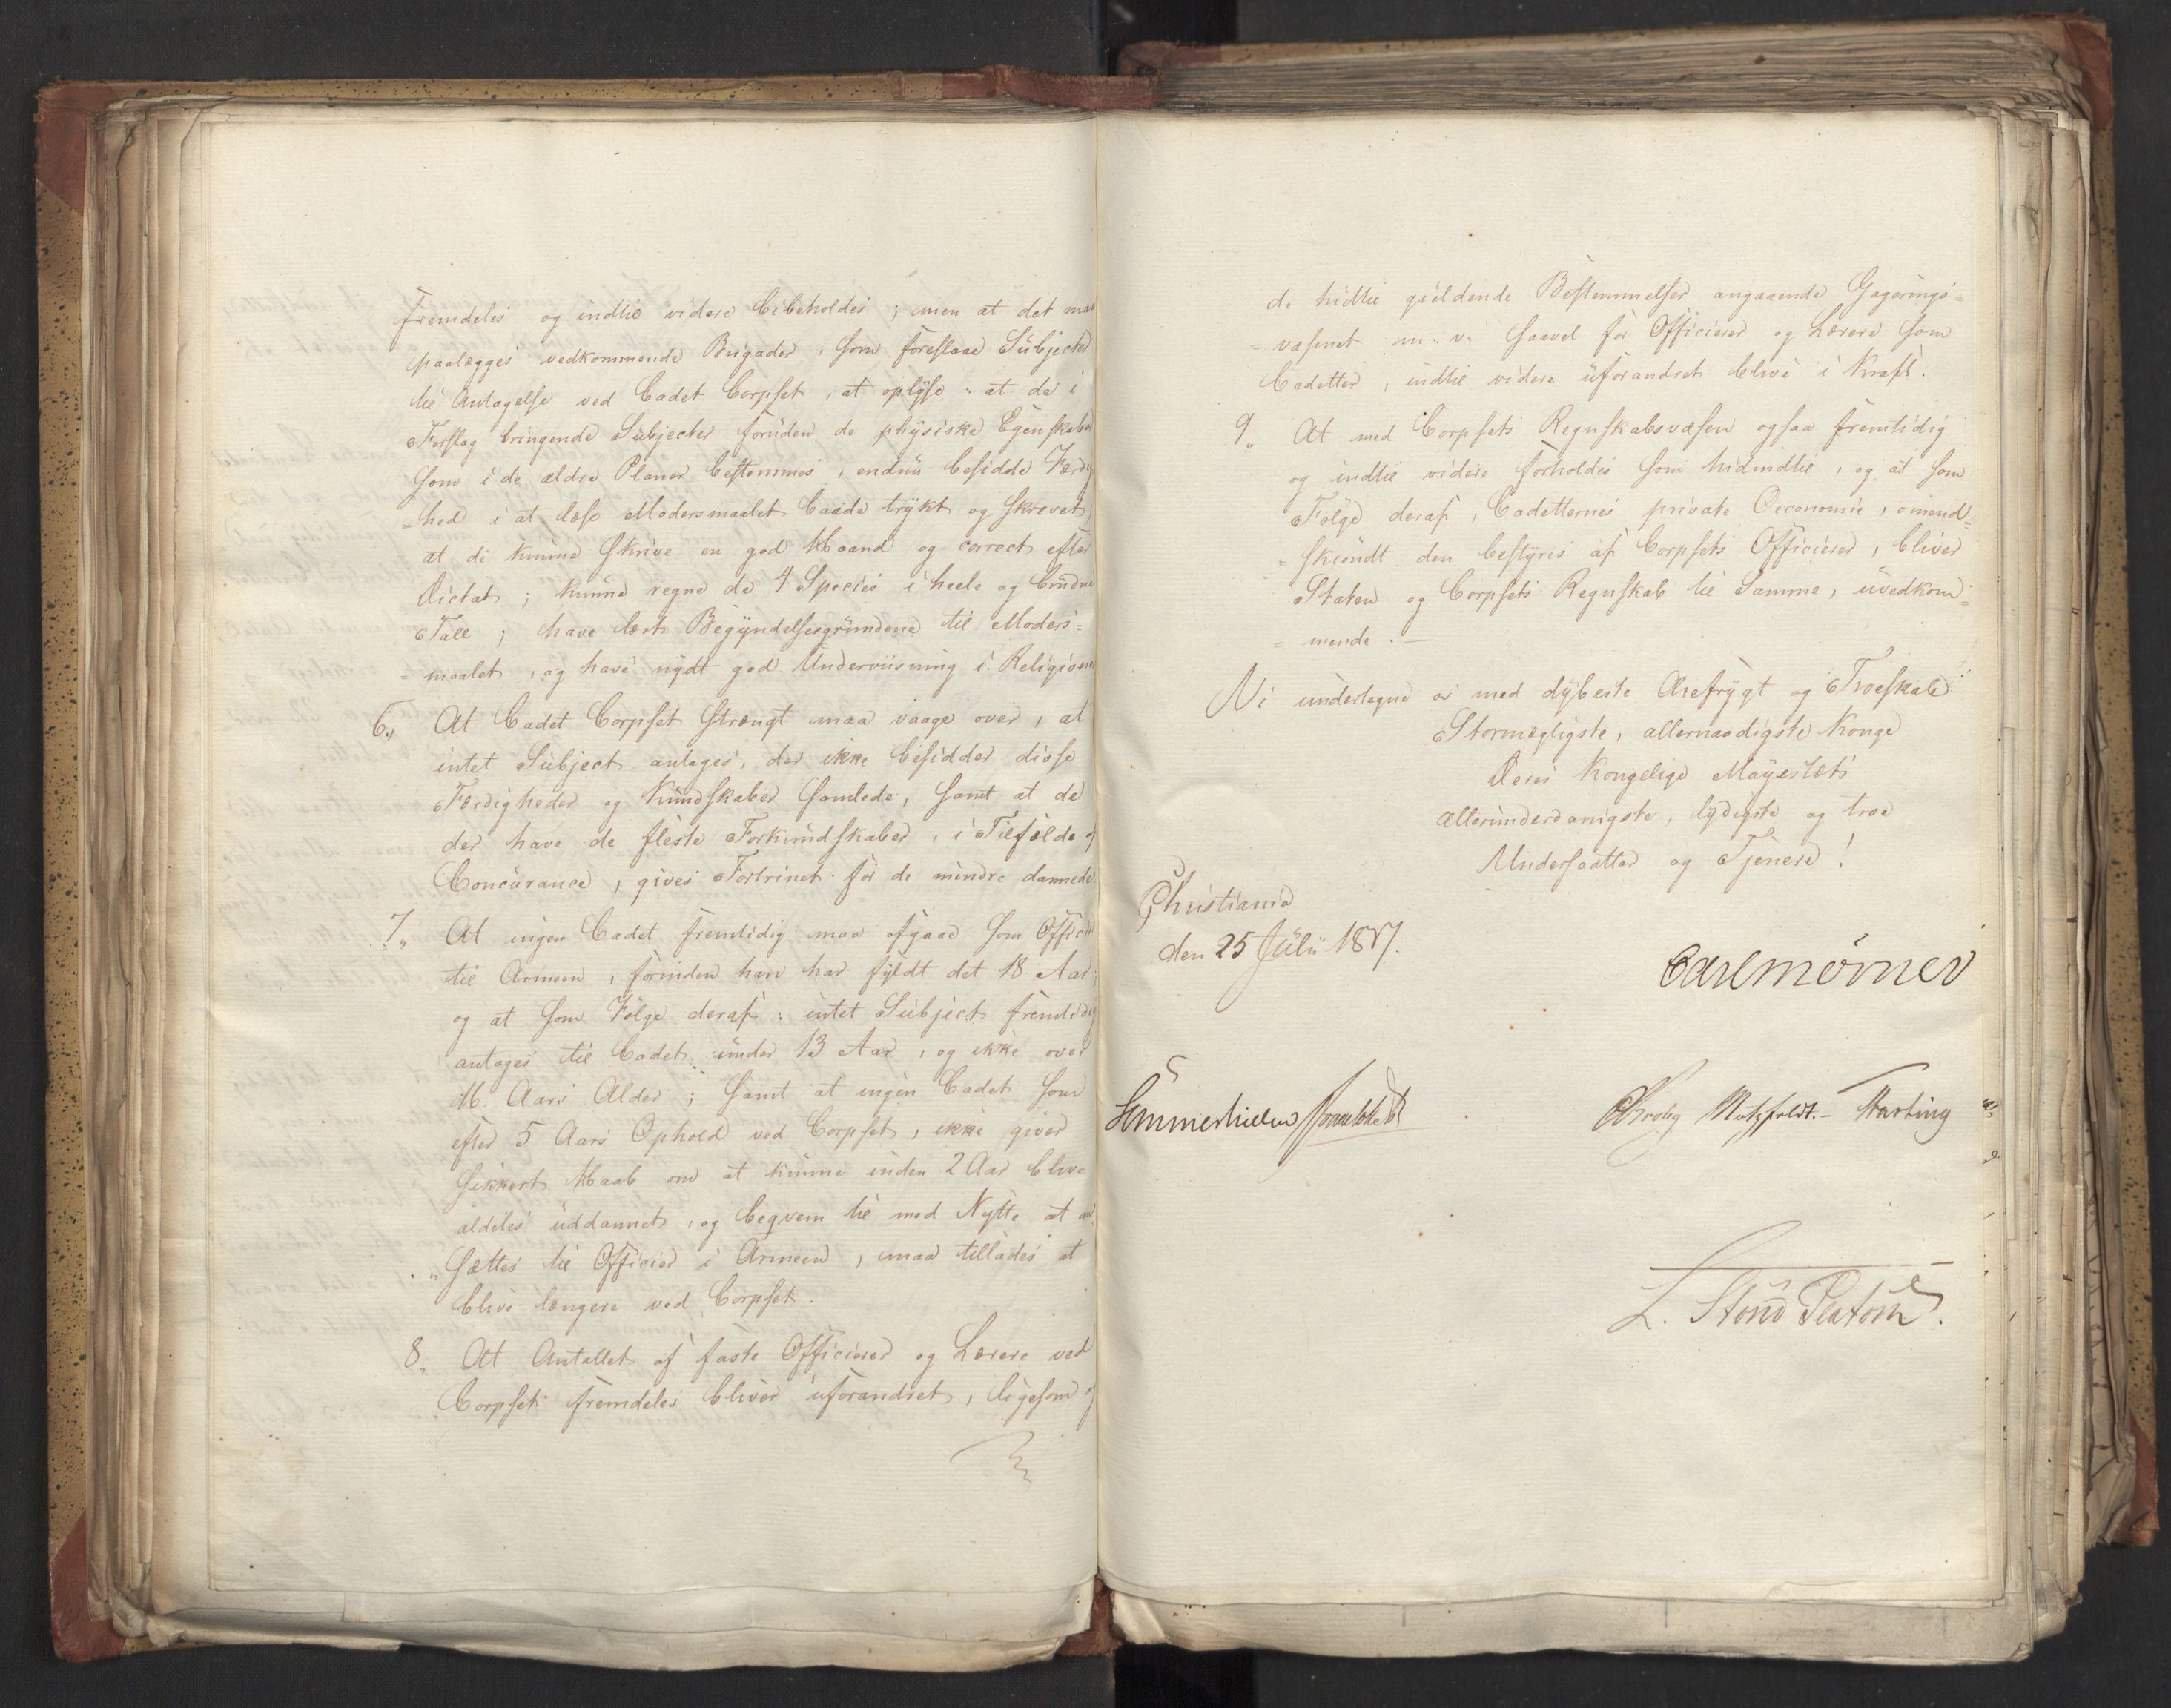 fremdeles og indtil videre bibeholdes; men at det maa
paalægges vedkommende Brigader, som foreslaae Subjecter
til Antagelse ved Cadet Corpset, at oplyse: at de i
Forslag bringende Subjecter foruden de physiske Egenskaber
som i de ældre Planer bestemmes, endnu besidde Færdig
=hed i at læse Modersmaalet baade trykt og skrevet;
at de kunne skrive en god Haand og correct efter
Dictat; kunne regne de 4 Species i heele og brudne
Tall; have lært Begyndelsesgrundene til Moders=
=maalet, og have nydt god Underviisning i Religionen
6., At Cadet Corpset strængt maa vaage over, at
intet Subject antages, der ikke besidder disse
Færdigheder og Kundskaber samlede, samt at de
der have de fleste Forkundskaber, i Tilfælde af
Concurance, gives Fortrinet for de mindre dannede.
7„ At ingen Cadet fremtidig maa afgaae som Officier
til Armeen, forinden han har fyldt det 18 Aar;
og at som Følge deraf: intet Subject fremtidig
antages til Cadet under 13 Aar, og ikke over
16 Aars Alder; samt at ingen Cadet som
efter 5 Aars Ophold ved Corpset, ikke giver
sikkert Haab om at kunne inden 2 Aar blive
aldeles uddannet, og beqvem til med Nytte at an
„sættes til Officier i Armeen, maa tillades at
blive længere ved Corpset.
8„ At Antallet af faste Officierer og Lærere ved
Corpset fremdeles bliver uforandret, ligesom og
de hidtil gieldende Bestemmelser angaaende Gagerings=
=væsenet m: v: saavel for Officierer og Lærere som
Cadetter, indtil videre uforandret blive i Kraft.
9„ At med Corpsets Regnskabsvæsen ogsaa fremtidig
og indtil videre forholdes som hidindtil, og at som
Følge deraf, Cadetternes private Oeconomie, omend=
=skiøndt den bestyres af Corpsets Officierer, bliver
Staten og Corpsets Regnskab til Samme, uvedkom=
=mende.—
Vi undertegne os med dybeste Ærefrygt og Troeskab
Stormægtigste, allernaadigste Konge
Deres Kongelige Mayestæts
allerunderdanigste, lydigste og troe
Undersaatter og Tjenere!
Christiania
den 25 Julii 1817.
Carl Mörner
Sommerhielm
Krohg Motzfeldt.— Harting
L. Stoud Platou.